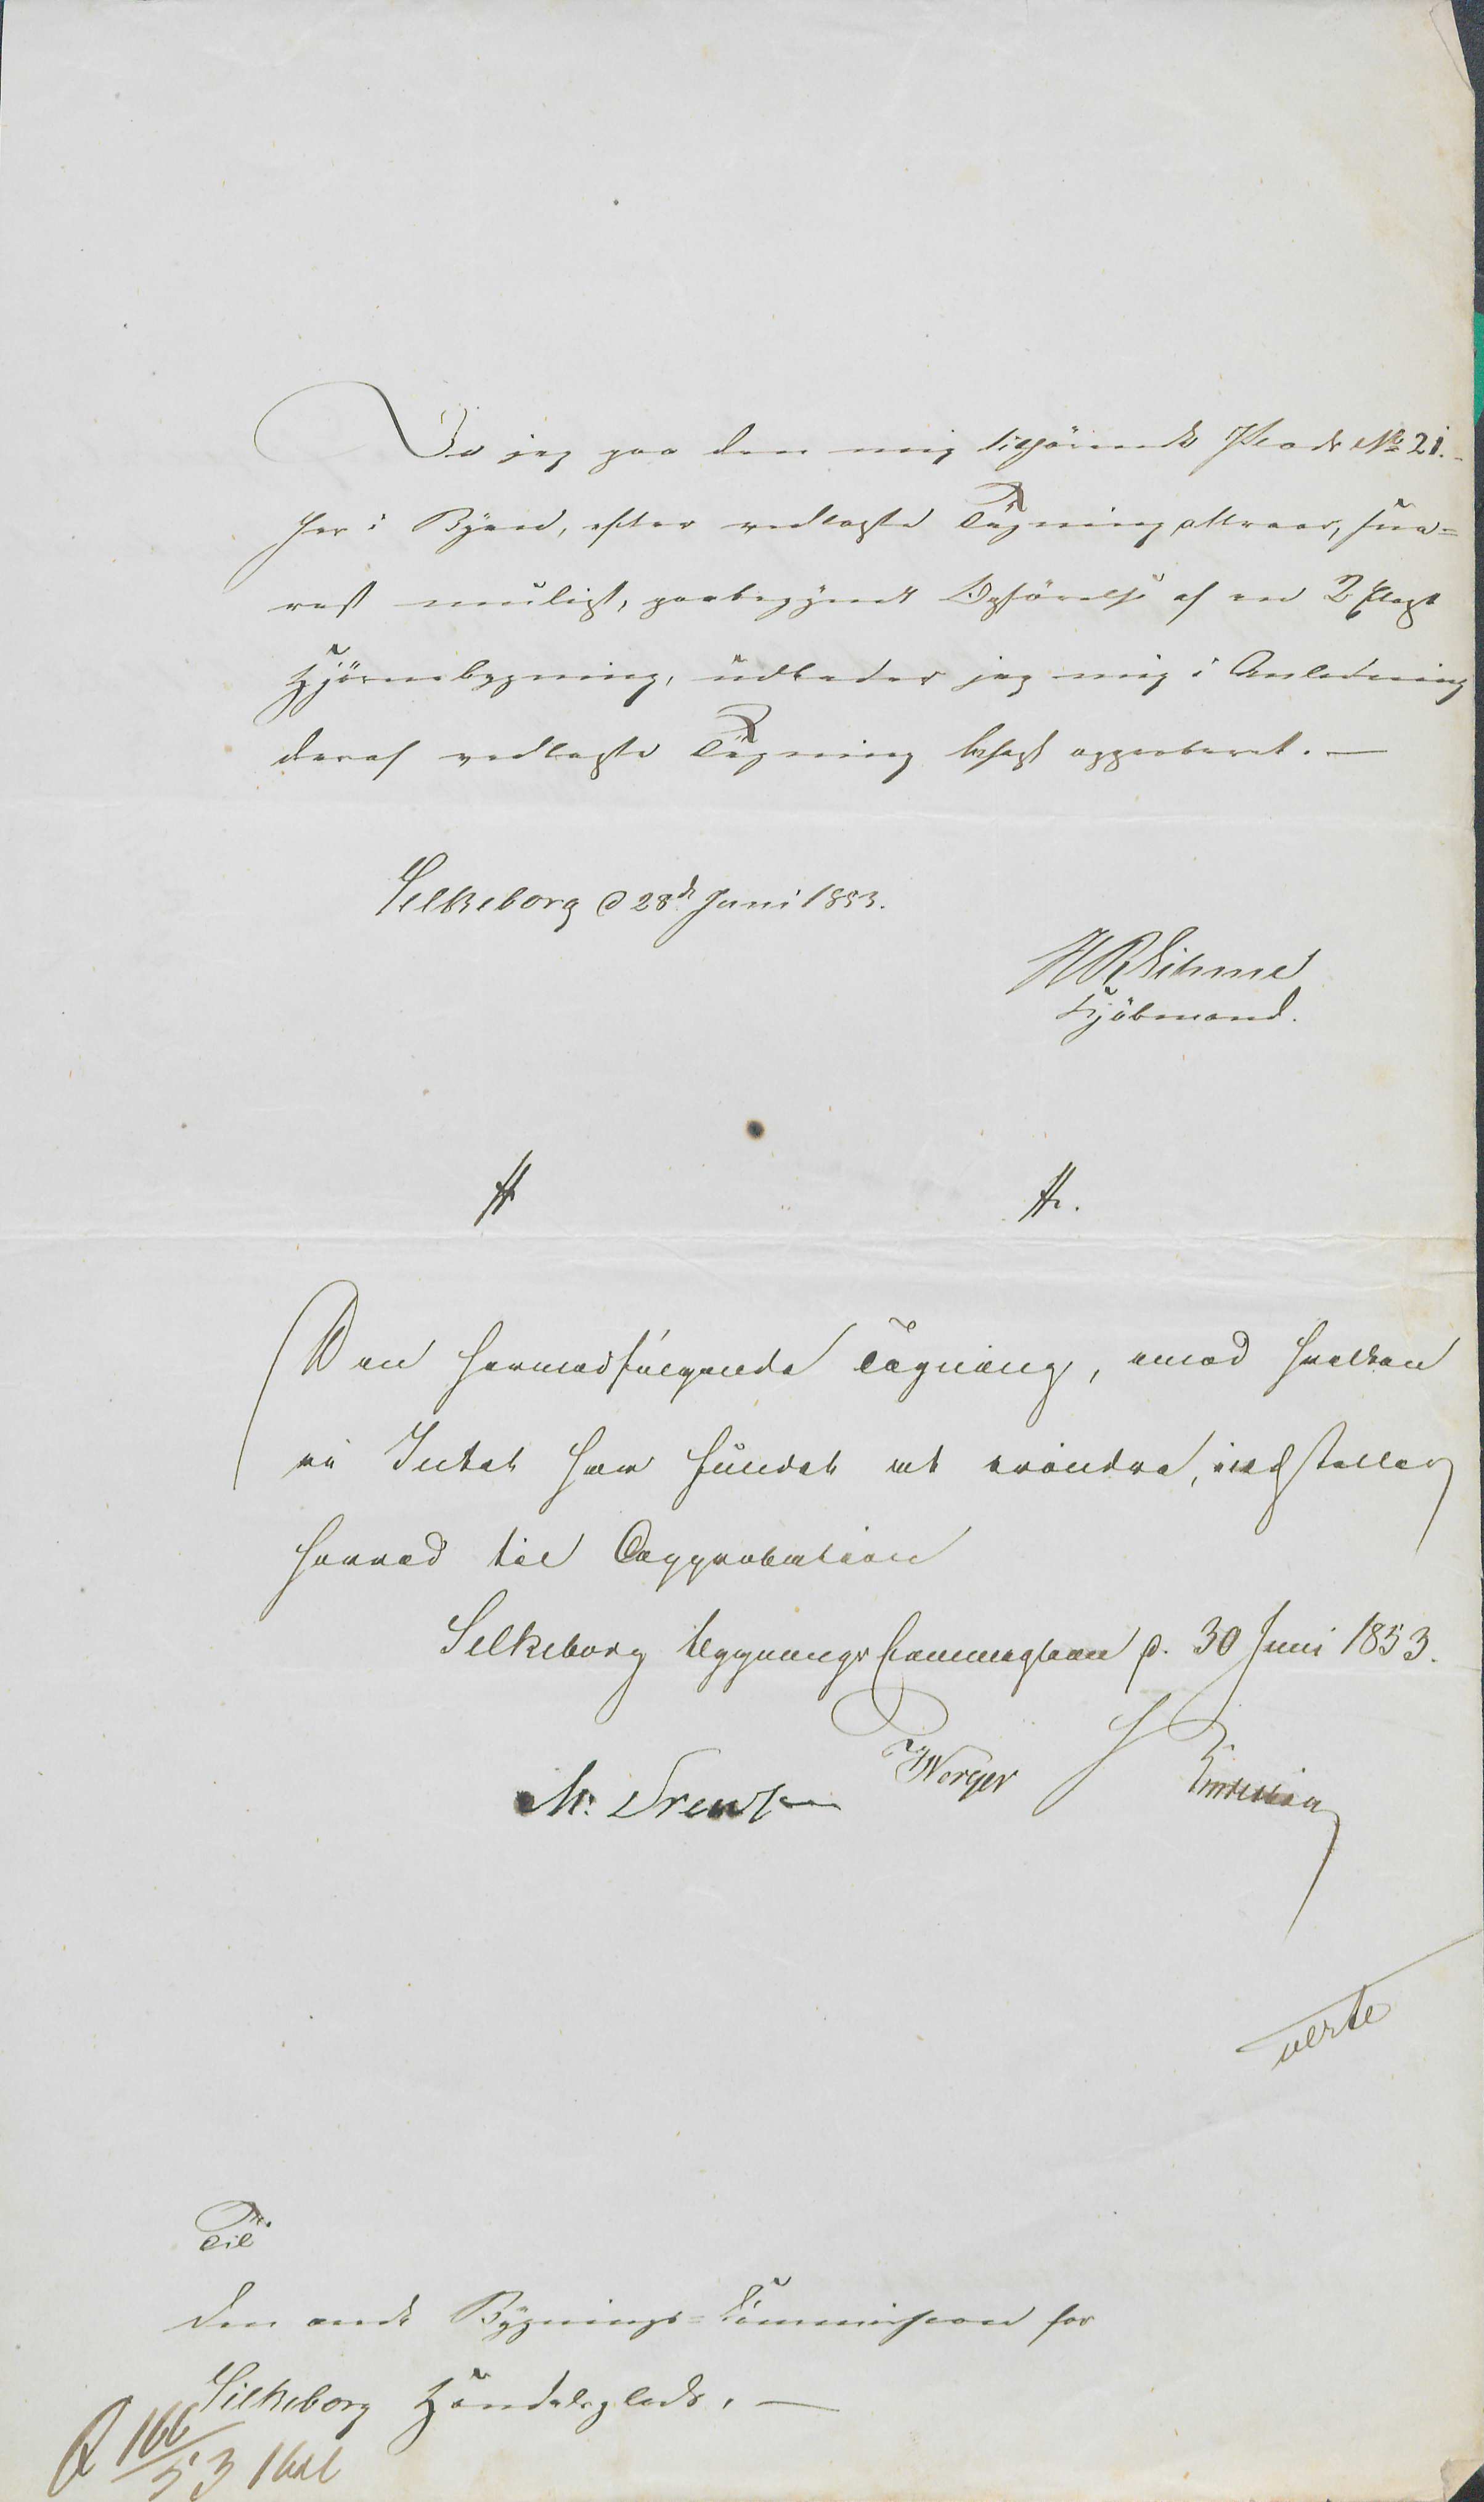 Da jeg paa den mig tilhørende Plads No 21.
her i Byen, efter vedlagte Tegning attraar, sna=
rest muligt, paabegyndt Opførelse af en 2 Etages
Hjørnebygning, udbeder jeg mig i Anledning
deraf vedlagte Tegning behagl. approberet. —
Silkeborg d 28de Juni 1853.
Kjøbmand.
Den hermedfølgende Tegning, imod hvilken
vi Intet har fundet at erindre, indstilles
herved til Approbation
Silkeborg Bygnings Commission d. 30 Juni 1853.
M. Drewsen Worger H
verte
Til
den ærede Bygnings=Commission for
Silkeborg Handelsplads. —
166
53